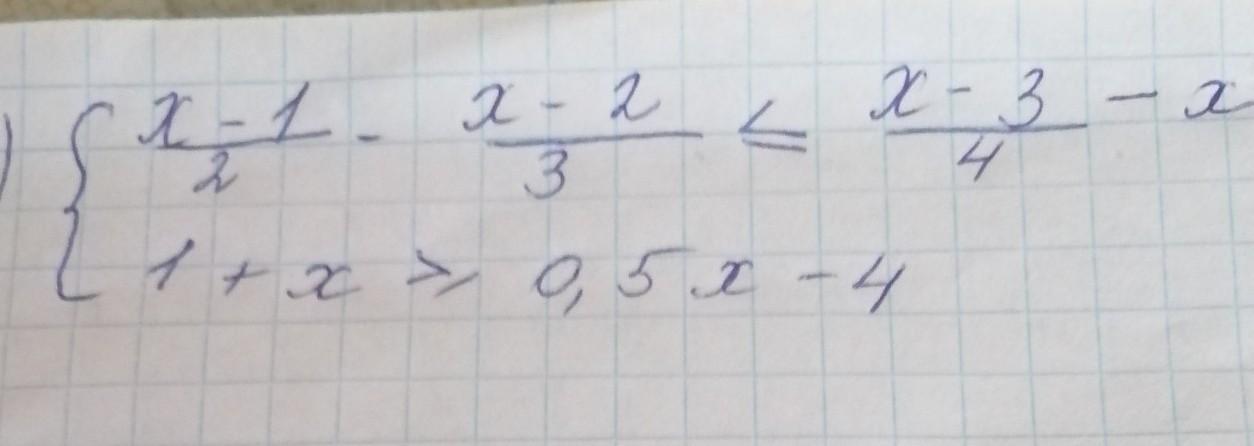 ) { (x - 1)/2 - (x - 2)/3 ≤ (x - 3)/4 - x
1 + x ⩾ 0,5x - 4